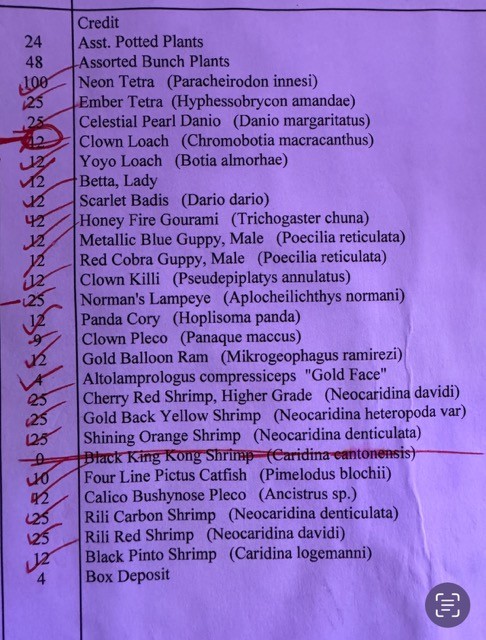 Credit
24 Asst. Potted Plants
48 Assorted Bunch Plants
100 Neon Tetra (Paracheirodon innesi)
25 Ember Tetra (Hyphessobrycon amandae)
25 Celestial Pearl Danio (Danio margaritatus)
12 Clown Loach (Chromobotia macracanthus)
12 Yoyo Loach (Botia almorhae)
12 Betta, Lady
12 Scarlet Badis (Dario dario)
12 Honey Fire Gourami (Trichogaster chuna)
12 Metallic Blue Guppy, Male (Poecilia reticulata)
12 Red Cobra Guppy, Male (Poecilia reticulata)
12 Clown Killi (Pseudepiplatys annulatus)
25 Norman's Lampeye (Aplocheilichthys normani)
12 Panda Cory (Hoplisoma panda)
9 Clown Pleco (Panaque maccus)
12 Gold Balloon Ram (Mikrogeophagus ramirezi)
4 Altolamprologus compressiceps "Gold Face"
25 Cherry Red Shrimp, Higher Grade (Neocaridina davidi)
25 Gold Back Yellow Shrimp (Neocaridina heteropoda var)
25 Shining Orange Shrimp (Neocaridina denticulata)
0 Black King Kong Shrimp (Caridina cantonensis)
10 Four Line Pictus Catfish (Pimelodus blochii)
12 Calico Bushynose Pleco (Ancistrus sp.)
25 Rili Carbon Shrimp (Neocaridina denticulata)
25 Rili Red Shrimp (Neocaridina davidi)
12 Black Pinto Shrimp (Caridina logemanni)
4 Box Deposit